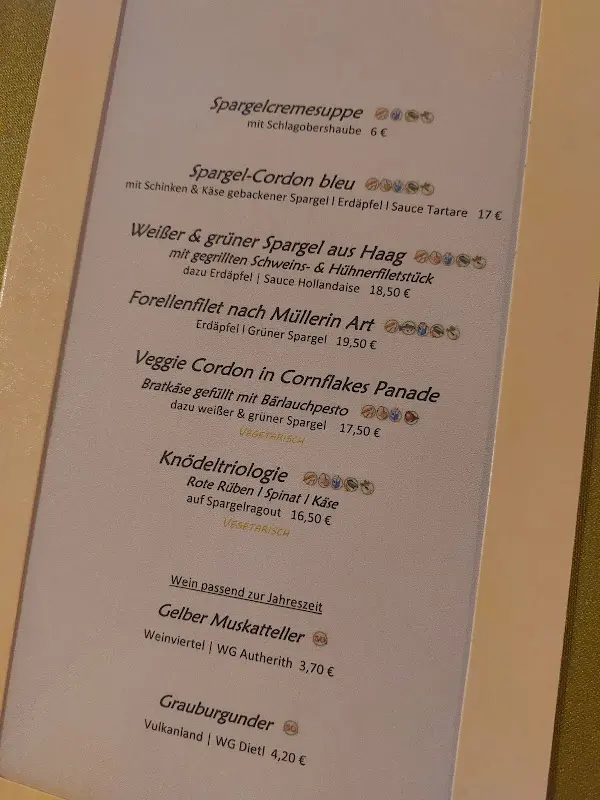 Spargelcremesuppe
mit Schlagobershaube 6 €
Spargel-Cordon bleu
mit Schinken & Käse gebackener Spargel l Erdäpfel l Sauce Tartare 17 €
Weißer & grüner Spargel aus Haag
mit gegrillten Schweins- & Hühnerfiletstück
dazu Erdäpfel | Sauce Hollandaise 18,50 €
Forellenfilet nach Müllerin Art
Erdäpfel l Grüner Spargel 19,50 €
Veggie Cordon in Cornflakes Panade
Bratkäse gefüllt mit Bärlauchpesto
dazu weißer & grüner Spargel 17,50 €
VEGETARISCH
Knödeltriologie
Rote Rüben l Spinat l Käse
auf Spargelragout 16,50 €
VEGETARISCH
Wein passend zur Jahreszeit
Gelber Muskatteller
Weinviertel | WG Autherith 3,70 €
Grauburgunder
Vulkanland | WG Dietl 4,20 €